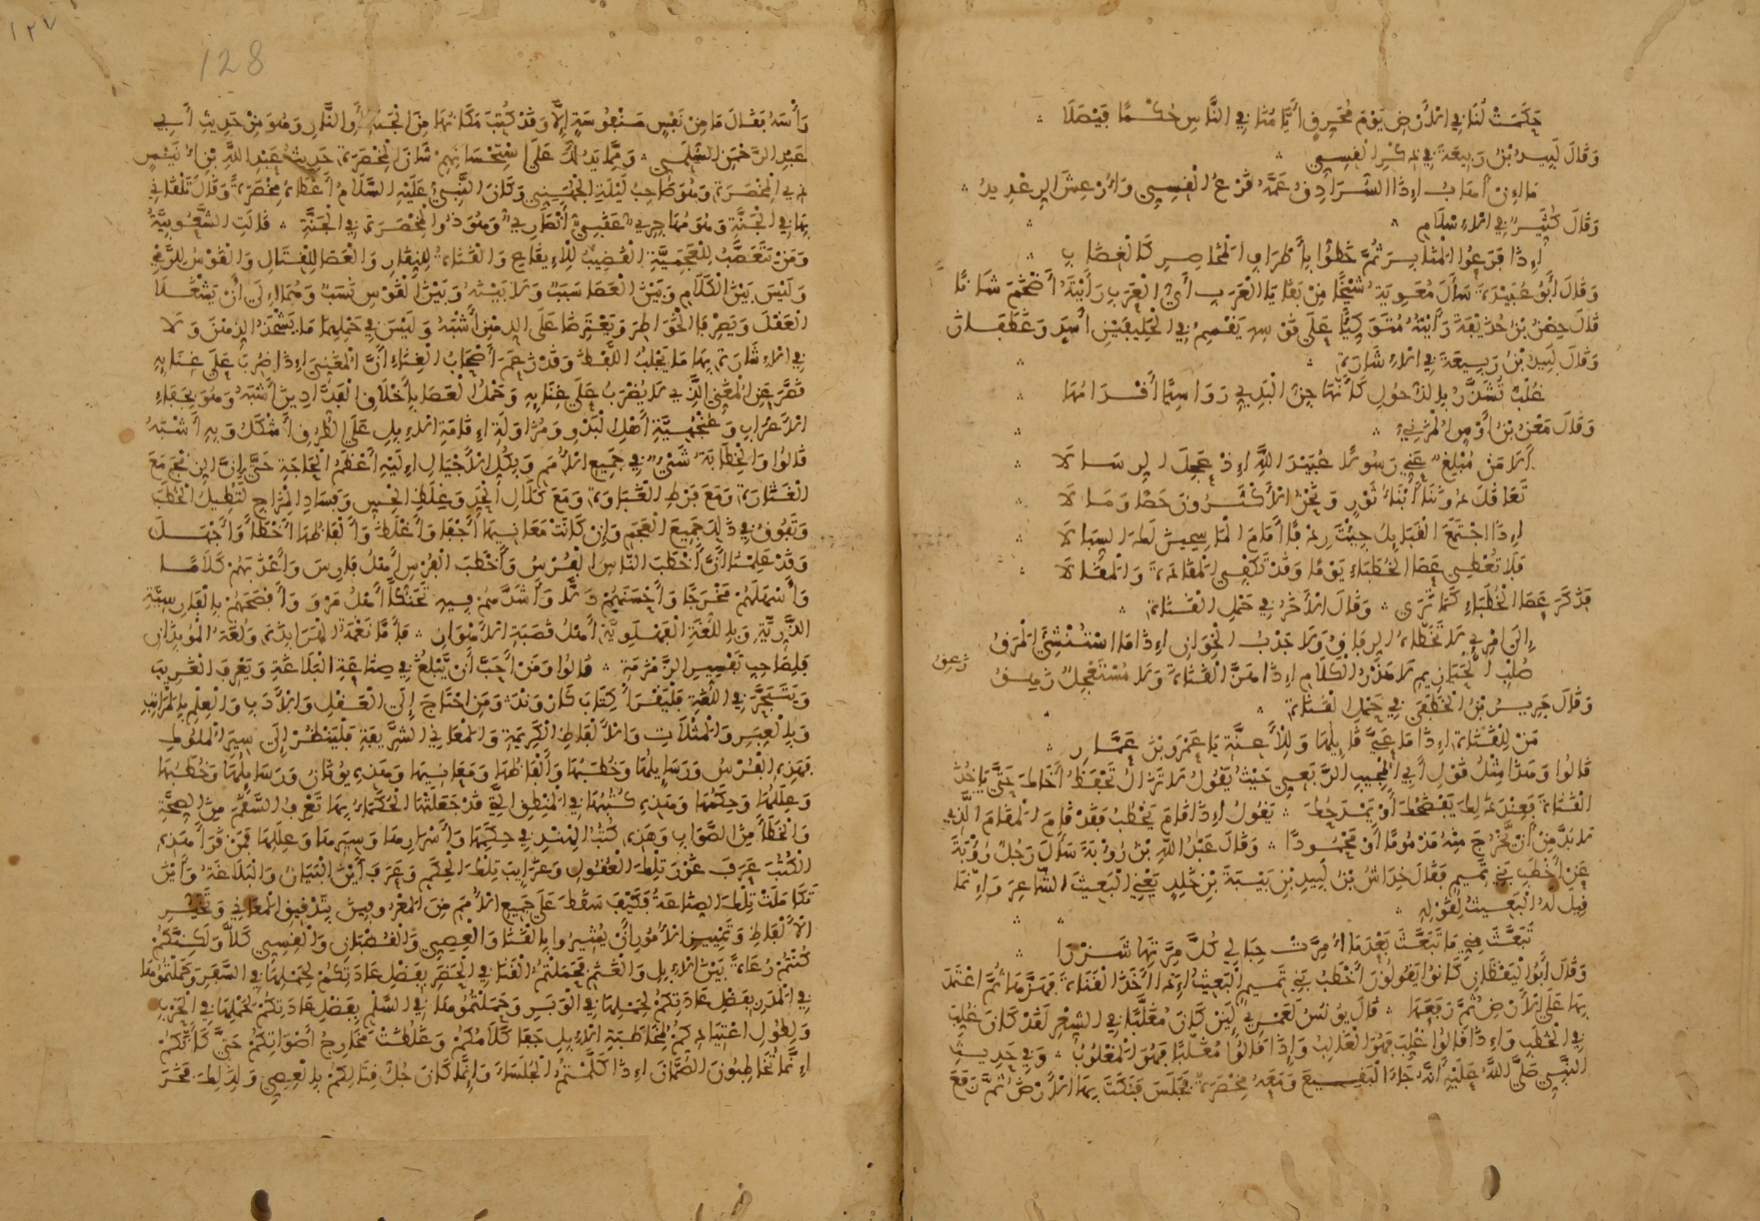 حَكَمَتْ لَنَا فِي الْأَرْضِ يَوْمَ مُحَرِّقٍ أَيَّامُنَا فِي النَّاسِ حُكْمًا فَيْصَلَا
وَقَالَ لَبِيدُ بْنُ رَبِيعَةَ فِي ذِكْرِ الْقِسِيِّ
مَا إِنْ أَهَابُ إِذَا السُّرَادِقُ غَمَّهُ قَرْعُ الْقِسِيِّ وَأُرْعِشَ الرِّعْدِيدُ
وَقَالَ كُثَيِّرٌ فِي الْإِسْلَامِ
إِذَا قَرَعُوا الْمَنَابِرَ ثُمَّ خَطُّوا بِأَطْرَافِ الْمَخَاصِرِ كَالْغِضَابِ
وَقَالَ أَبُو عُبَيْدَةَ سَأَلَ مُعَوِيَةُ شَيْخًا مِنْ بَقَايَا الْعَرَبِ أَيُّ الْعَرَبِ رَأَيْتَهُ أَضْخَمَ شَانًا
قَالَ حِصْنُ بْنُ حُذَيْفَةَ رَأَيْتُهُ مُتَوَكِّيًا عَلَى قَوْسِهِ يَقْسِمُ فِي الْحَلِيفَيْنِ أَسَدٍ وَغَطَفَانَ
وَقَالَ لَبِيدُ بْنُ رَبِيعَةَ فِي الْإِشَارَةِ
غُلْبٌ تَشَذَّرُ بِالذُّحُولِ كَأَنَّهَا جِنُّ الْبَدِيِّ رَوَاسِيًا أَقْدَامُهَا
وَقَالَ مَعْنُ بْنُ أَوْسٍ الْمُزَنِيُّ
أَلَا مَنْ مُبْلِغٌ عَنِّي رَسُولًا عُبَيْدَ اللَّهِ إِذْ عَجِلَ الرِّسَالَا
تُعَاقِلُ دُونَنَا أَبْنَاءُ ثَوْرٍ وَنَحْنُ الْأَكْثَرُونَ حَصًا وَمَالَا
إِذَا اجْتَمَعَ الْقَبَايِلُ جِيْتَ رِدْفًا أَمَامَ الْمَاسِحِينَ لَكَ السِّبَالَا
فَلَا تُعْطِي عَصَا الْخُطَبَاءِ يَوْمًا وَقَدْ تُكْفِي الْمَقَادَةَ وَالْمَقَالَا
فَذَكَرَ عَصَا الْخُطَبَاءِ كَمَا تَرَى وَقَالَ الْآخَرُ فِي حَمْلِ الْقَنَاةِ
إِلَى امْرِئٍ لَا تَخَطَّاهُ الرِّفَاقُ وَلَا جَدْبُ الْخِوَانِ إِذَا مَا اسْتُنْشِئَ الْمَرَقُ
صُلْبُ الْحَيَازِيمِ لَا هَذْرُ الْكَلَامِ إِذَا هَزَّ الْقَنَاةَ وَلَا مُسْتَعْجِلٌ زَهِقُ
وَقَالَ جَرِيرُ بْنُ الْخَطَفَى فِي حَمْلِ الْقَنَاةِ
مَنْ لِلْقَنَاةِ إِذَا مَا عَيَّ قَايِلُهَا وَلِلْأَعِنَّةِ يَا عَمْرَو بْنَ عَمَّارِ
قَالُوا وَهَذَا مِثْلُ قَوْلِ أَبِي الْمُجِيبِ الرَّبَعِيِّ حَيْثُ يَقُولُ لَا تَزَالُ تَحْفَظُ أَخَاكَ حَتَّى يَاخُذَ
الْقَنَاةَ فَعِنْدَ ذَلِكَ يَفْضَحُكَ أَوْ يَمْدَحُكَ يَقُولُ إِذَا قَامَ يَخْطُبُ فَقَدْ قَامَ الْمَقَامَ الَّذِي
لَا بُدَّ مِنْ أَنْ يَخْرُجَ مِنْهُ مَذْمُومًا أَوْ مَحْمُودًا وَقَالَ عَبْدُ اللَّهِ بْنُ رُؤْبَةَ سَأَلَ رَجُلٌ رُؤْبَةَ
عَنْ أَخْطَبِ بَنِي تَمِيمٍ فَقَالَ خِدَاشُ بْنُ لَبِيدِ بْنِ بَيْبَةَ بْنِ خَلِدٍ يَعْنِي الْبَعِيثَ الشَّاعِرَ وَإِنَّمَا
قِيلَ لَهُ الْبَعِيثُ لِقَوْلِهِ
تَبَعَّثَ مِنِّي مَا تَبَعَّثَ بَعْدَمَا أُمِرَّتْ حِبَالِي كُلَّ مِرَّتِهَا شَزْرَا
وَقَالَ أَبُو الْيَقْظَانِ كَانُوا يَقُولُونَ أَخْطَبُ بَنِي تَمِيمٍ الْبَعِيثُ إِذَا أَخَذَ الْقَنَاةَ فَهَزَّهَا ثُمَّ اعْتَمَدَ
بِهَا عَلَى الْأَرْضِ ثُمَّ رَفَعَهَا قَالَ يُونُسُ لَعَمْرِي لَيِنْ كَانَ مُغَلَّبًا فِي الشِّعْرِ لَقَدْ كَانَ غُلِّبَ
فِي الْخُطَبِ وَإِذَا قَالُوا غُلِّبَ فَهُوَ الْغَالِبُ وَإِذَا قَالُوا مُغَلَّبًا فَهُوَ الْمَغْلُوبُ وَفِي حَدِيثِ
النَّبِيِّ صَلَّى اللَّهُ عَلَيْهِ أَنَّهُ جَاءَ الْبَقِيعَ وَمَعَهُ مِخْصَرَةٌ فَجَلَسَ فَنَكَتَ بِهَا الْأَرْضَ ثُمَّ رَفَعَ
١٢٧
128
رَأْسَهُ فَقَالَ مَا مِنْ نَفْسٍ مَنْفُوسَةٍ إِلَّا وَقَدْ كُتِبَ مَكَانُهَا مِنَ الْجَنَّةِ أَوِ النَّارِ وَهُوَ مِنْ حَدِيثِ أَبِي
عَبْدِ الرَّحْمَنِ السُّلَمِيِّ وَمِمَّا يَدُلُّكَ عَلَى اسْتِحْسَانِهِمْ شَانَ الْمِخْصَرَةِ حَدِيثُ عَبْدِ اللَّهِ بْنِ أُنَيْسٍ
ذِي الْمِخْصَرَةِ وَهُوَ صَاحِبُ لَيْلَةِ الْجُهَنِيِّ وَكَانَ النَّبِيُّ عَلَيْهِ السَّلَامُ أَعْطَاهُ مِخْصَرَةً وَقَالَ تَلْقَانِي
بِهَا فِي الْجَنَّةِ وَهُوَ مُهَاجِرِيٌّ عَقَبِيٌّ أَنْصَارِيٌّ وَهُوَ ذُو الْمِخْصَرَةِ فِي الْجَنَّةِ قَالَتِ الشُّعُوبِيَّةُ
وَمَنْ تَعَصَّبَ لِلْعَجَمِيَّةِ الْقَضِيبُ لِلْإِيقَاعِ وَالْقَنَاةُ لِلْبَقَّارِ وَالْعَصَا لِلْقِتَالِ وَالْقَوْسُ لِلرَّمْيِ
وَلَيْسَ بَيْنَ الْكَلَامِ وَبَيْنَ الْعَصَا سَبَبٌ وَلَا بَيْنَهُ وَبَيْنَ الْقَوْسِ نَسَبٌ وَهُمَا إِلَى أَنْ يَشْغَلَا
الْعَقْلَ وَيَصْرِفَا الْخَوَاطِرَ وَيَعْتَرِضَا عَلَى الذِّهْنِ أَشْبَهُ وَلَيْسَ فِي حَمْلِهِمَا مَا يَشْحَذُ الذِّهْنَ وَلَا
فِي الْإِشَارَةِ بِهَا مَا يَجْلِبُ اللَّفْظَ وَقَدْ زَعَمَ أَصْحَابُ الْغِنَاءِ أَنَّ الْمُغَنِّيَ إِذَا ضُرِبَ عَلَى غِنَايِهِ
قَصَّرَ عَنِ الْمُغَنِّي الَّذِي لَا يُضْرَبُ عَلَى غِنَايِهِ وَحَمْلُ الْعَصَا بِأَخْلَاقِ الْفَدَّادِينَ أَشْبَهُ وَهُوَ بِجَفَاءِ
الْأَعْرَابِ وَعُنْجُهِيَّةِ أَهْلِ الْبَدْوِ وَمُزَاوَلَةِ إِقَامَةِ الْإِبِلِ عَلَى الطُّرُقِ أَشْكَلُ وَبِهِ أَشْبَهُ
قَالُوا وَالْخَطَابَةُ شَيْءٌ فِي جَمِيعِ الْأُمَمِ وَبِكُلِّ الْأَجْيَالِ إِلَيْهِ أَعْظَمُ الْحَاجَةِ حَتَّى إِنَّ الزِّنْجَ مَعَ
الْغَثَارَةِ وَمَعَ فَرْطِ الْغَبَاوَةِ وَمَعَ كَلَالِ الْحَدِّ وَغِلَظِ الْحِسِّ وَفَسَادِ الْمِزَاجِ لَتُطِيلُ الْخُطَبَ
وَتَفُوقُ فِي ذَلِكَ جَمِيعَ الْعَجَمِ وَإِنْ كَانَتْ مَعَانِيهَا أَجْفَا وَأَغْلَظَ وَأَلْفَاظُهَا أَخْطَأَ وَأَجْهَلَ
وَقَدْ عَلِمْنَا أَنَّ أَخْطَبَ النَّاسِ الْفُرْسُ وَأَخْطَبَ الْفُرْسِ أَهْلُ فَارِسَ وَأَعْذَبَهُمْ كَلَامًا
وَأَسْهَلَهُمْ مَخْرَجًا وَأَحْسَنَهُمْ دَلًّا وَأَشَدَّهُمْ فِيهِ تَحَنُّكًا أَهْلُ مَرْوَ وَأَفْصَحَهُمْ بِالْفَارِسِيَّةِ
الدَّرِيَّةِ وَبِاللُّغَةِ الْفَهْلَوِيَّةِ أَهْلُ قَصَبَةِ الْأَهْوَازِ فَأَمَّا نَغْمَةُ الْهَرَابِذَةِ وَلُغَةُ الْمُوبِذَانِ
فَلِصَاحِبِ تَفْسِيرِ الزَّمْزَمَةِ قَالُوا وَمَنْ أَحَبَّ أَنْ يَبْلُغَ فِي صِنَاعَةِ الْبَلَاغَةِ وَيَعْرِفَ الْغَرِيبَ
وَيَتَبَحَّرَ فِي اللُّغَةِ فَلْيَقْرَأْ كِتَابَ كَارْوَنْدَ وَمَنِ احْتَاجَ إِلَى الْعَقْلِ وَالْأَدَبِ وَالْعِلْمِ بِالْمَرَاتِبِ
وَبِالْعِبَرِ وَالْمَثُلَاتِ وَالْأَلْفَاظِ الْكَرِيمَةِ وَالْمَعَانِي الشَّرِيفَةِ فَلْيَنْظُرْ إِلَى سِيَرِ الْمُلُوكِ
فَهَذِهِ الْفُرْسُ وَرَسَايِلُهَا وَخُطَبُهَا وَأَلْفَاظُهَا وَمَعَانِيهَا وَهَذِهِ يُونَانُ وَرَسَايِلُهَا وَخُطَبُهَا
وَعِلَلُهَا وَحِكَمُهَا وَهَذِهِ كُتُبُهَا فِي الْمَنْطِقِ الَّتِي قَدْ جَعَلَتْهَا الْحُكَمَاءُ بِهَا تَعْرِفُ السَّقَمَ مِنَ الصِّحَّةِ
وَالْخَطَأَ مِنَ الصَّوَابِ وَهَذِهِ كُتُبُ الْهِنْدِ فِي حِكَمِهَا وَأَسْرَارِهَا وَسِيَرِهَا وَعِلَلِهَا فَمَنْ قَرَأَ هَذِهِ
الْكُتُبَ عَرَفَ غَوْرَ تِلْكَ الْعُقُولِ وَغَرَايِبَ تِلْكَ الْحِكَمِ وَعَرَفَ أَيْنَ الْبَيَانُ وَالْبَلَاغَةُ وَأَيْنَ
تَكَامَلَتْ تِلْكَ الصِّنَاعَةُ فَكَيْفَ سَقَطَ عَلَى جَمِيعِ الْأُمَمِ مِنَ الْمَعْرُوفِينَ بِتَدْقِيقِ الْمَعَانِي وَتَخَيُّرِ
الْأَلْفَاظِ وَتَمْيِيزِ الْأُمُورِ أَنْ يُشِيرُوا بِالْقَنَا وَالْعِصِيِّ وَالْقُضْبَانِ وَالْقِسِيِّ كَلَّا وَلَكِنَّكُمْ
كُنْتُمْ رُعَاةً بَيْنَ الْإِبِلِ وَالْغَنَمِ فَحَمَلْتُمُ الْقَنَا فِي الْحَضَرِ بِفَضْلِ عَادَتِكُمْ لِحَمْلِهَا فِي السَّفَرِ وَحَمَلْتُمُوهَا
فِي الْمَدَرِ بِفَضْلِ عَادَتِكُمْ لِحَمْلِهَا فِي الْوَبَرِ وَحَمَلْتُمُوهَا فِي السَّلْمِ بِفَضْلِ عَادَتِكُمْ لِحَمْلِهَا فِي الْحَرْبِ
وَلِطُولِ اعْتِيَادِكُمْ لِمُخَاطَبَةِ الْإِبِلِ جَفَا كَلَامُكُمْ وَغَلُظَتْ مَخَارِجُ أَصْوَاتِكُمْ حَتَّى كَأَنَّكُمْ
إِنَّمَا تُخَاطِبُونَ الصُّمَّانَ إِذَا كَلَّمْتُمُ الْجُلَسَاءَ وَإِنَّمَا كَانَ جُلُّ قِتَالِكُمْ بِالْعِصِيِّ وَلِذَلِكَ فَخَرَ